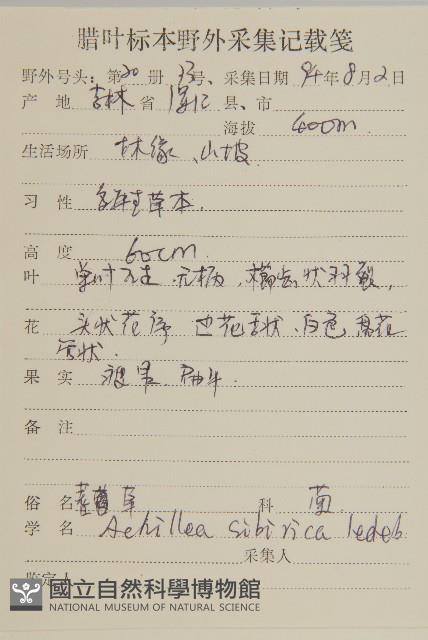 腊叶标本野外采集记载笺
野外号头：第20册 号、采集日期 94年8月2日
产 地 吉林 省 县、市
海拔 600m
生活场所 林缘、山坡
习 性 多年生草本.
高 度 60cm
叶 单叶互生 无柄，栉齿状羽裂，
花 头状花序 边花舌状、白色，
管状.
果 实 瘦果
备 注
俗 名 蓍草 科 菊
学 名 Achillea sibirica ledeb
采集人
鉴定人
國立自然科學博物館
NATIONAL MUSEUM OF NATURAL SCIENCE